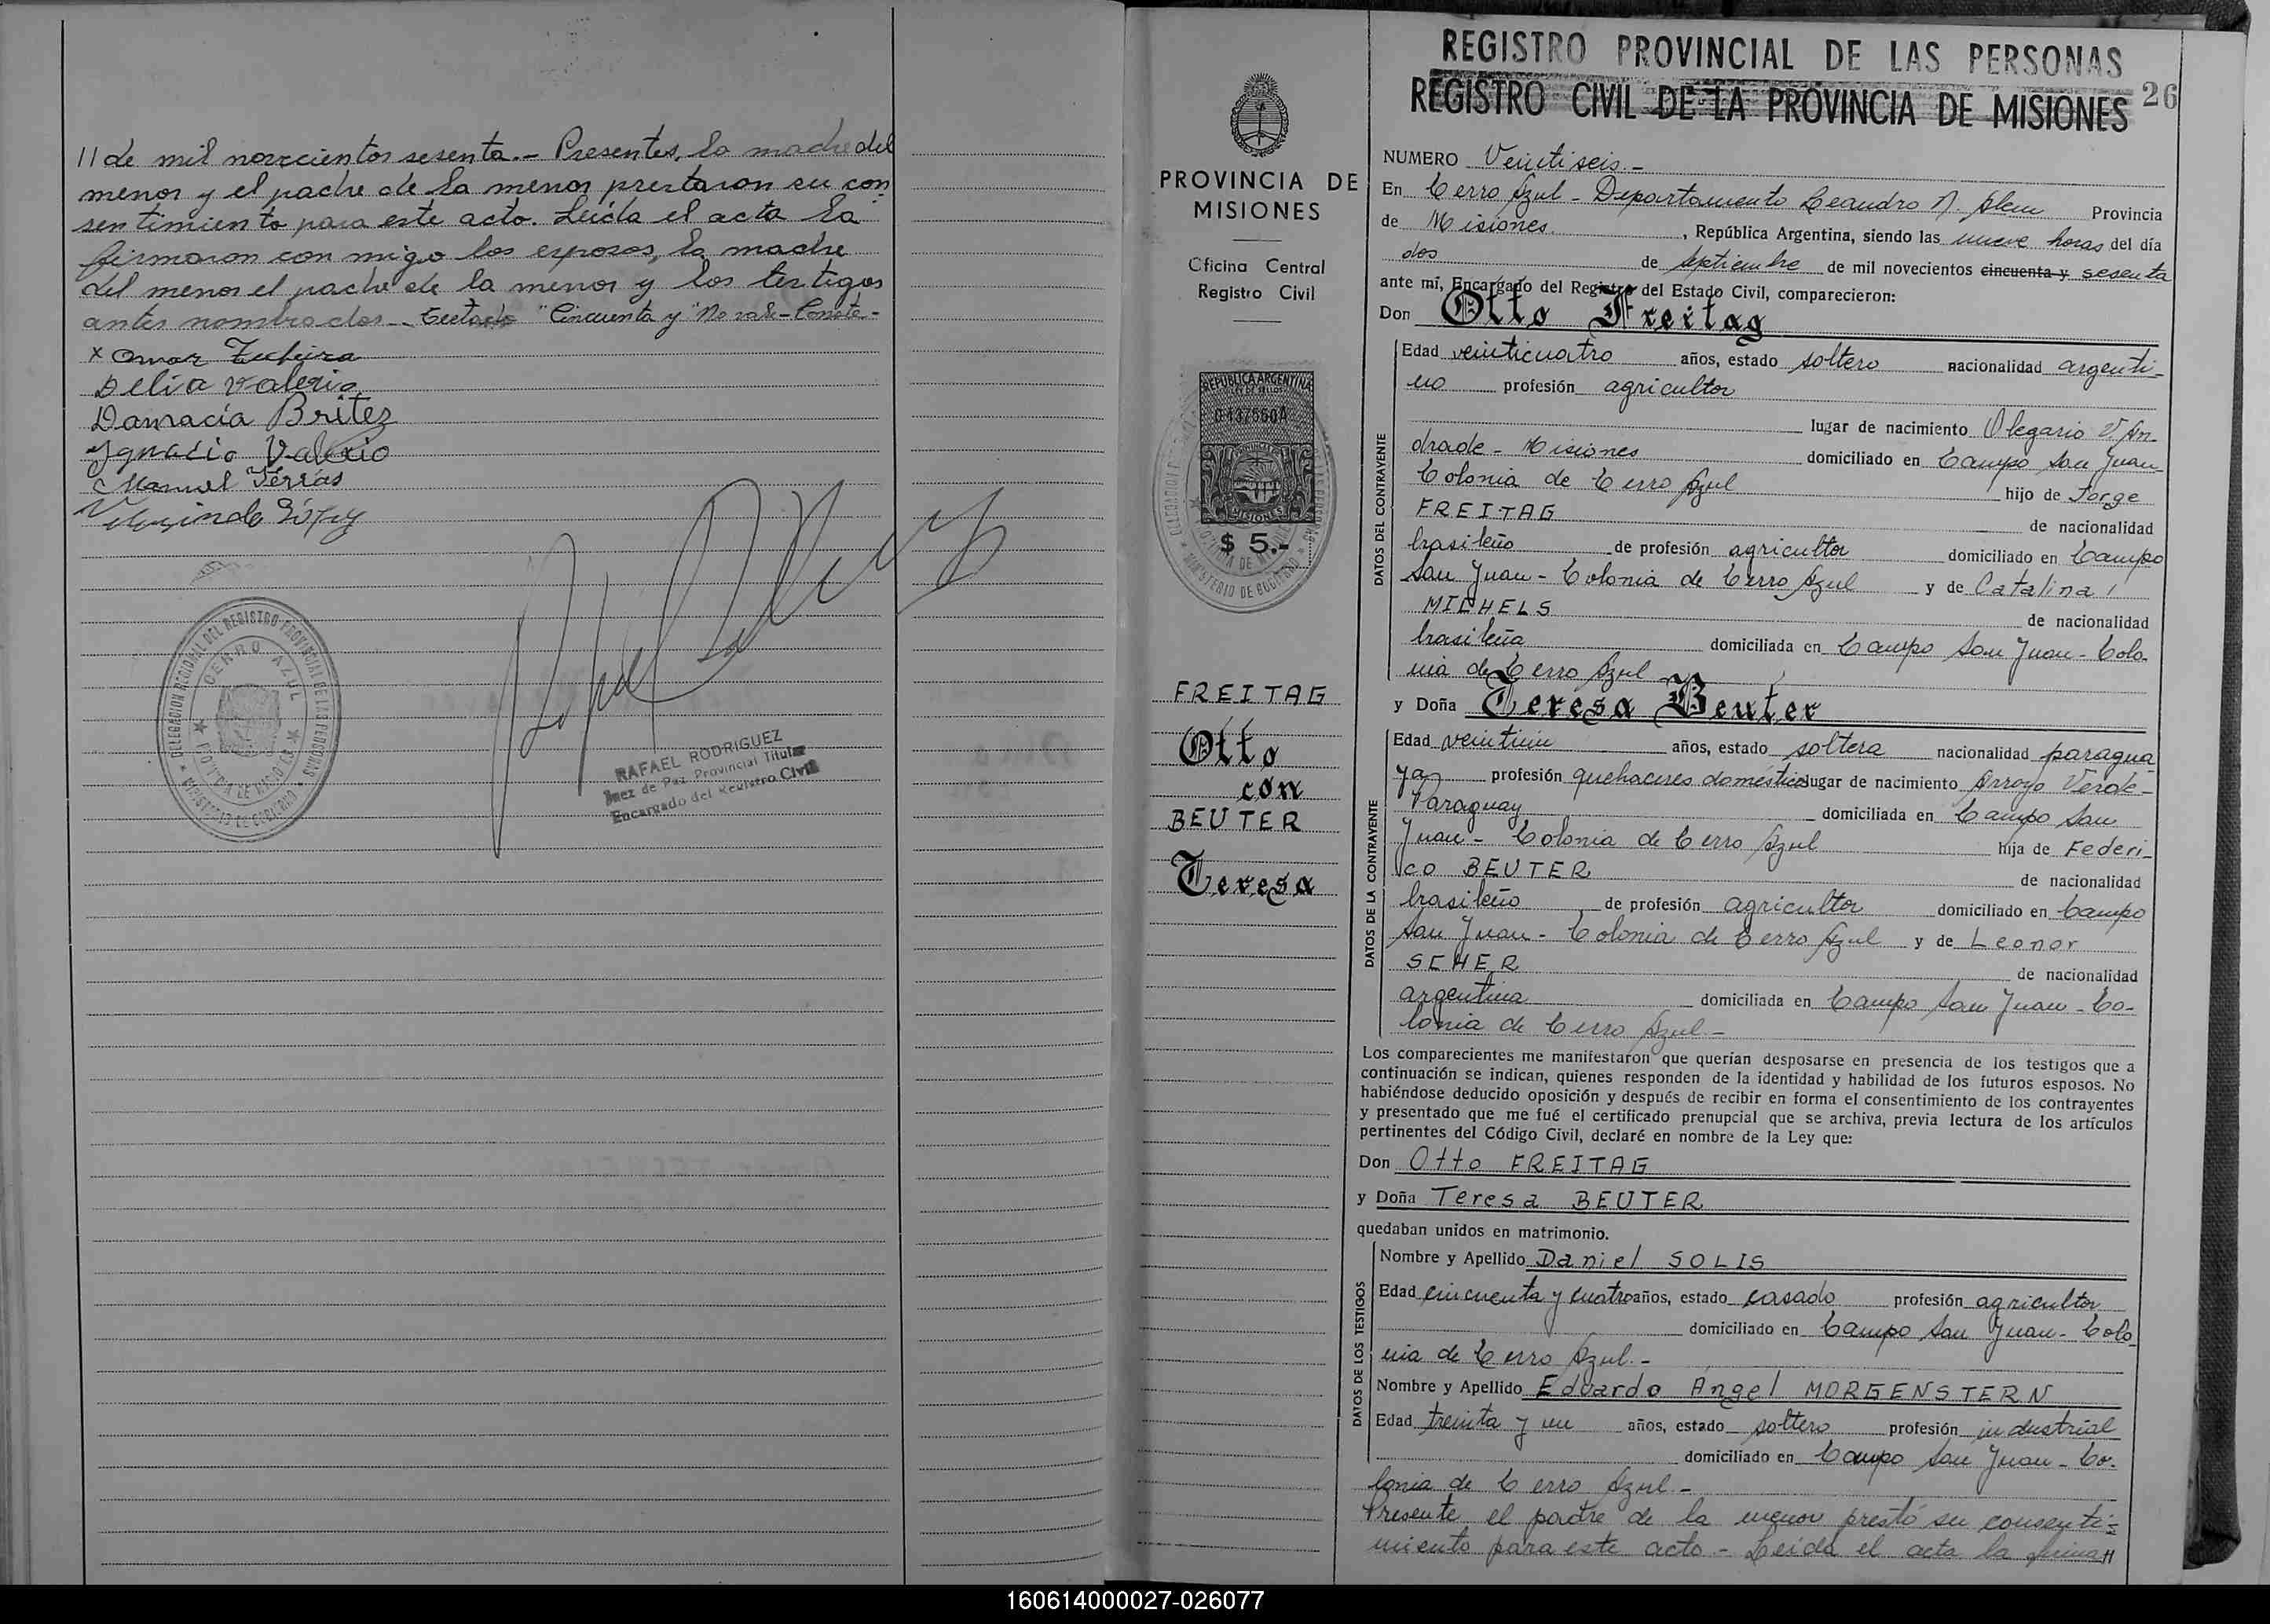 11 de mil novecientos sesenta.- Presentes, la madre del
menor y el padre de la menor prestaron su con
sentimiento para este acto. Leída el acta la
firmaron con migo los esposos, la madre
del menor el padre de la menor y los testigos
antes nombrados.- Testado "Cincuenta y" No vale-Conste-
x Omar
Delia Valerio
Damacia Britez
Ygnacio Valerio
Manuel Ferras
DELEGACION REGIONAL DEL REGISTRO PROVINCIAL DE LAS PERSONAS
CERRO AZUL
MINISTERIO DE GOBIERNO
RAFAEL RODRIGUEZ
Juez de Paz Provincial Titular
Encargado del Registro Civil
PROVINCIA DE
MISIONES
Oficina Central
Registro Civil
REPUBLICA ARGENTINA
LEY DE SELLOS
0437560A
MISIONES
$ 5.-
MINISTERIO DE GOBIERNO
FREITAG
Otto
con
BEUTER
Teresa
REGISTRO PROVINCIAL DE LAS PERSONAS
REGISTRO CIVIL DE LA PROVINCIA DE MISIONES 26
NUMERO Veintiseis.-
En Cerro Azul - Departamento Leandro N. Alem Provincia
de Misiones. , República Argentina, siendo las nueve horas del día
dos de septiembre de mil novecientos cincuenta y sesenta
ante mí, Encargado del Registro del Estado Civil, comparecieron:
Don Otto Freitag
DATOS DEL CONTRAYENTE
Edad veinticuatro años, estado soltero nacionalidad argenti-
no profesión agricultor
lugar de nacimiento Olegario V An-
drade - Misiones domiciliado en Campo San Juan-
Colonia de Cerro Azul hijo de Jorge
FREITAG de nacionalidad
brasileño de profesión agricultor domiciliado en Campo
San Juan - Colonia de Cerro Azul y de Catalina
MICHELS de nacionalidad
brasileña domiciliada en Campo San Juan - Colo-
nia de Cerro Azul
y Doña Teresa Beuter
DATOS DE LA CONTRAYENTE
Edad veintiun años, estado soltera nacionalidad paragua
ya profesión quehaceres domésticos lugar de nacimiento Arroyo Verde-
Paraguay domiciliada en Campo San
Juan - Colonia de Cerro Azul hija de Federi-
co BEUTER de nacionalidad
brasileño de profesión agricultor domiciliado en Campo
San Juan - Colonia de Cerro Azul y de Leonor
SCHER de nacionalidad
argentina domiciliada en Campo San Juan - Co-
lonia de Cerro Azul -
Los comparecientes me manifestaron que querían desposarse en presencia de los testigos que a
continuación se indican, quienes responden de la identidad y habilidad de los futuros esposos. No
habiéndose deducido oposición y después de recibir en forma el consentimiento de los contrayentes
y presentado que me fué el certificado prenupcial que se archiva, previa lectura de los artículos
pertinentes del Código Civil, declaré en nombre de la Ley que:
Don Otto FREITAG
y Doña Teresa BEUTER
quedaban unidos en matrimonio.
DATOS DE LOS TESTIGOS
Nombre y Apellido Daniel SOLIS
Edad cincuenta y cuatro años, estado casado profesión agricultor
domiciliado en Campo San Juan - Colo
nia de Cerro Azul.-
Nombre y Apellido Eduardo Angel MORGENSTERN
Edad treinta y un años, estado soltero profesión industrial
domiciliado en Campo San Juan - Co-
lonia de Cerro Azul -
Presente el padre de la menor prestó su consenti-
miento para este acto - Leída el acta la firma11
160614000027-026077